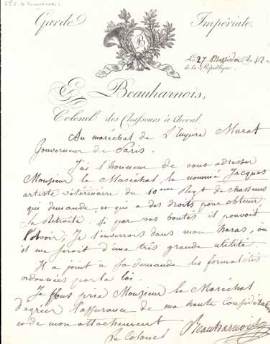 Garde Impériale
Le 27 Messidor an 12
de la République
E. Beauharnois,
Colonel des Chasseurs à Cheval,
Au maréchal de l'Empire Murat
Gouverneur de Paris.
J'ai l'honneur de vous adresser
Monsieur le Maréchal le nommé Jacques
artiste vétérinaire du 10eme Regt de chasseurs
qui demande, et qui a des droits pour obtenir
sa retraite, si par vos bontés il pouvoit
l'obtenir; Je dans mon haras, où
il me seroit d'une très grande utilité.
Il a joint à sa demande les formalités
ordonnées par la loi
Je vous prie Monsieur le Maréchal
d'agréer l'assurance de ma haute considération
et de mon attachement
Le Colonel Beauharnois